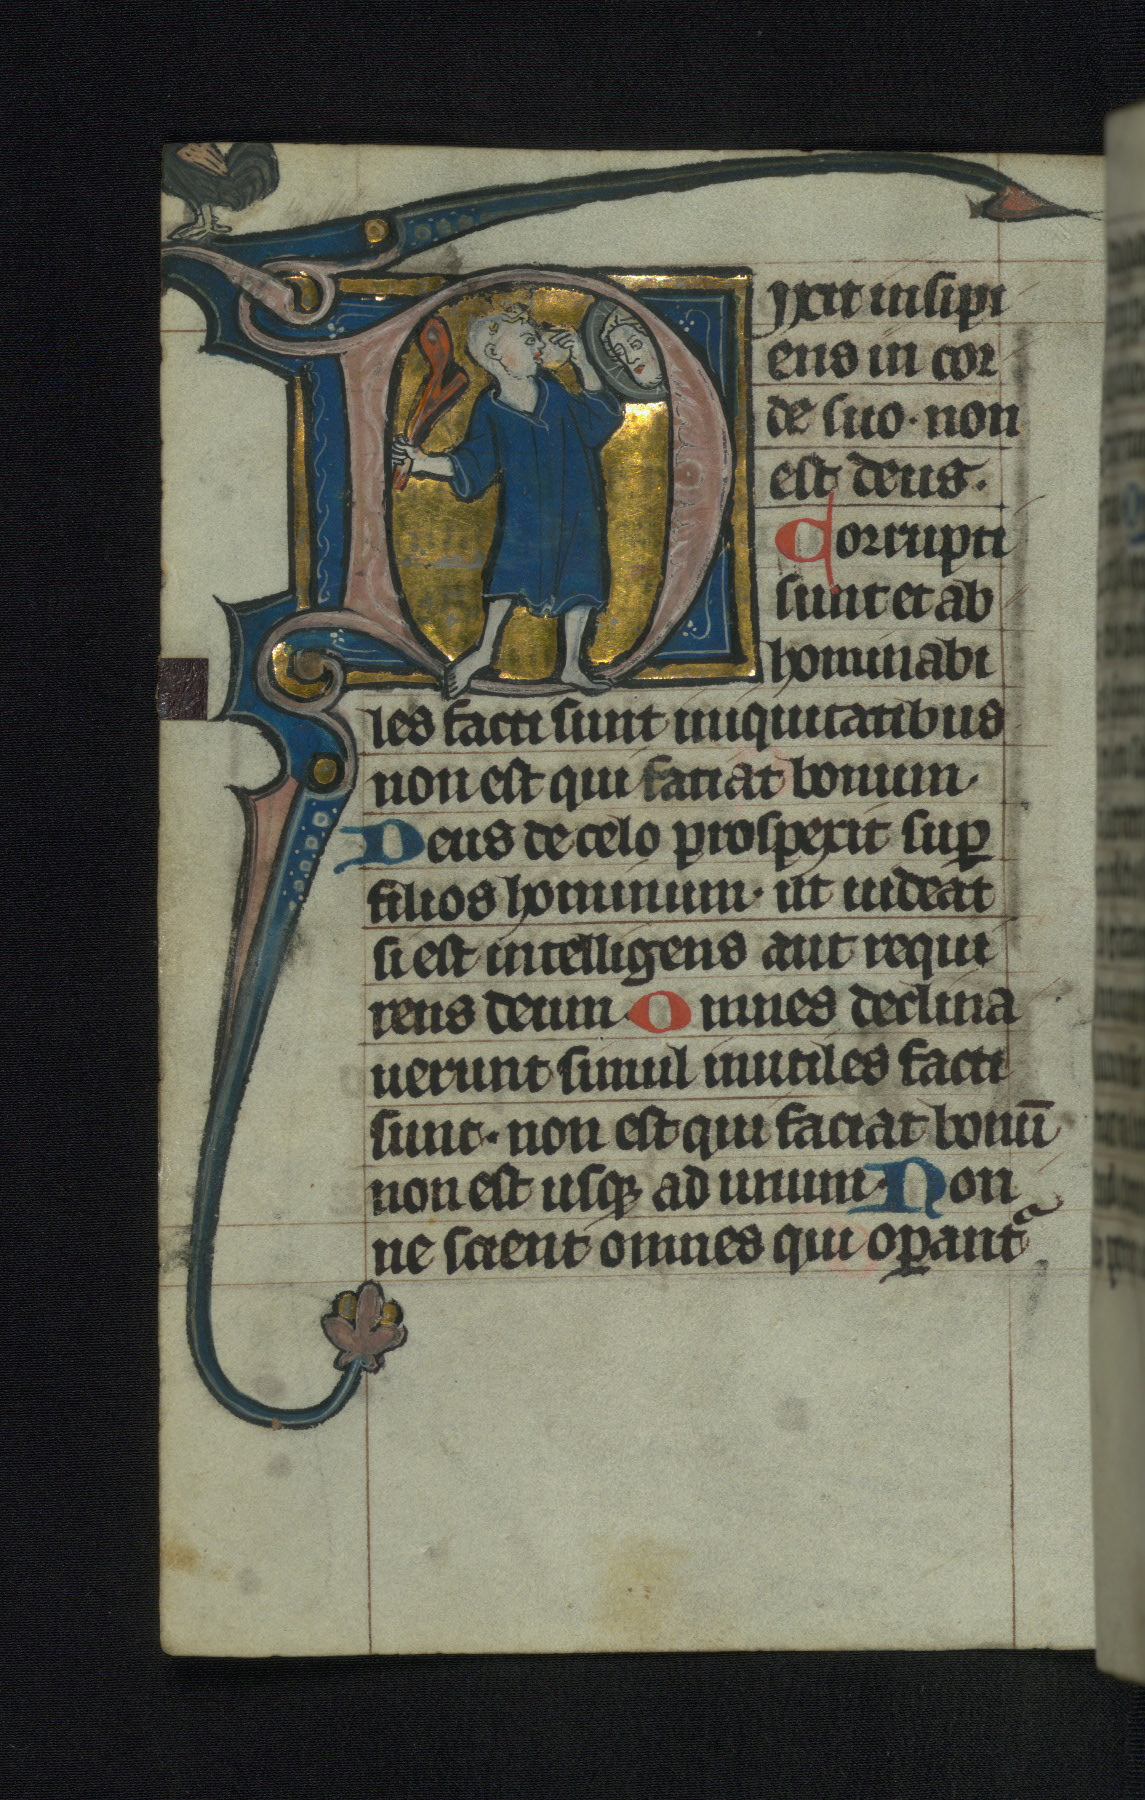 Dyxit insipi
ens in cor
de suo. non
est deus.
Corrupti
sunt et ab
hominabi
les facti sunt iniquitatibus
non est qui faciat bonum.
Deus de celo prosperit sup̱
filios hominum. ut uideat
si est intelligens aut requi
rens deum. Omnes declina
uerunt simul inutiles facti
sunt. non est qui faciat bonū
non est usq; ad unum. Non
ne scient omnes qui op̱antᵃ